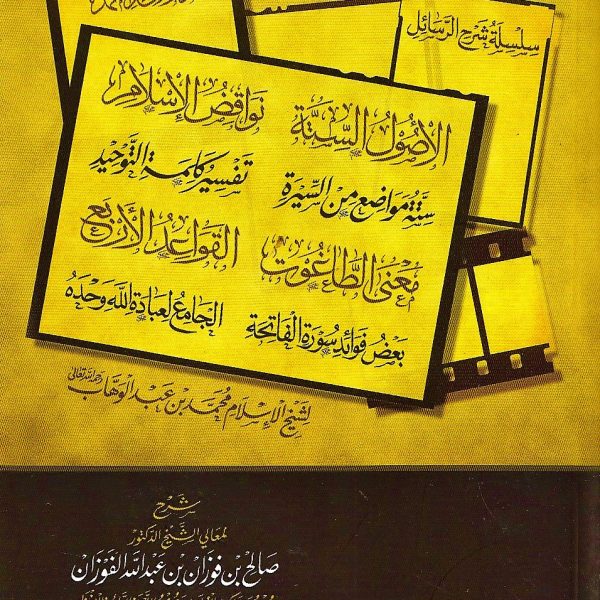 سلسلة شرح الرسائل
الأصول الستة
نواقض الإسلام
ستة مواضع من السيرة
تفسير كلمة التوحيد
معنى الطاغوت
القواعد الأربع
بعض فوائد سورة الفاتحة
الجامع لعبادة الله وحده
لشيخ الإسلام محمد بن عبد الوهاب رحمه الله تعالى
شرح
لمعالي الشيخ الدكتور
صالح بن فوزان بن عبد الله الفوزان